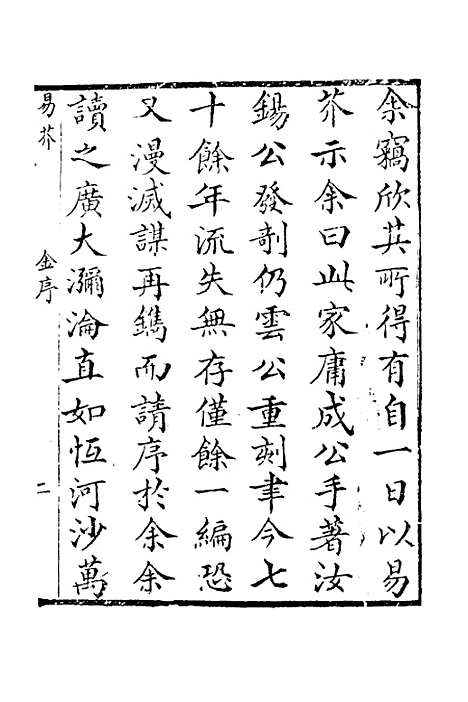 余竊欣其所得有自一日以易
芥示余曰此家庸成公手著汝
錫公發剞仍雲公重刻聿今七
十餘年流失無存僅餘一編恐
又漫滅謀再鐫而請序於余余
讀之廣大瀰淪直如恆河沙萬
易芥 金序 二